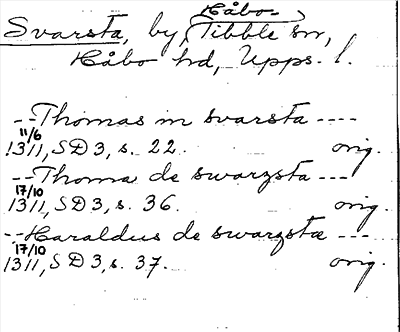 Håbo-
Svarsta, by, Tibble sn,
Håbo hd, Upps. l.
-- Thomas in svarsta ----
11/6
1311, SD 3, s. 22. orig.
-- Thoma de swarzsta ---
17/10
1311, SD 3, s. 36. orig.
-- Haraldus de swarzstæ ---
17/10
1311, SD 3, s. 37. orig.